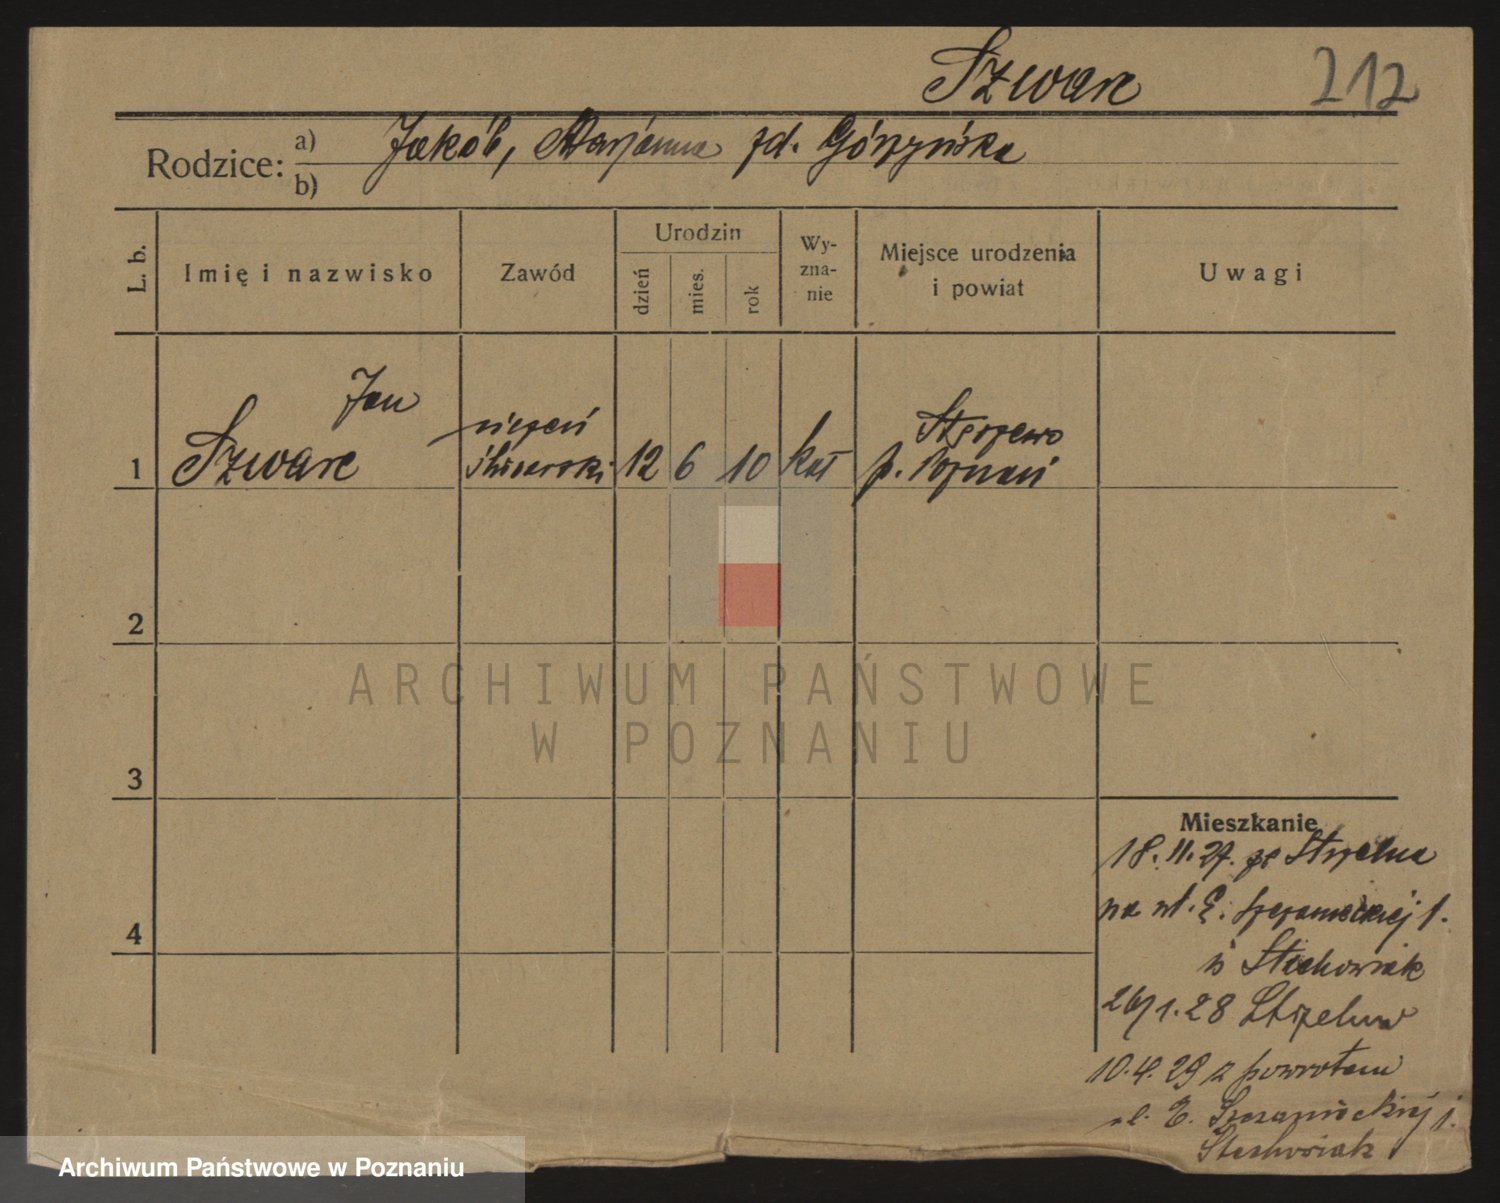 Szwarc 212
Rodzice:
a) Jakób, Marjanna zd. Górzyńska
b)
L. b.
Imię i nazwisko
Zawód
Urodzin
dzień
mies.
rok
Wy-
zna-
nie
Miejsce urodzenia
i powiat
Uwagi
Jan
1 Szwarc
uczeń
ślusarski
12 6 10 kat
p. Poznań
2
3
4
Mieszkanie
18.11.27. ze Strzelna
na ul. E. Szczanieckiej 1.
Stachowiak
26/1.28 Strzelno
10.4.29 z powrotem
ul. E. Szczanieckiej 1.
Stachowiak
ARCHIWUM PAŃSTWOWE
W POZNANIU
Archiwum Państwowe w Poznaniu